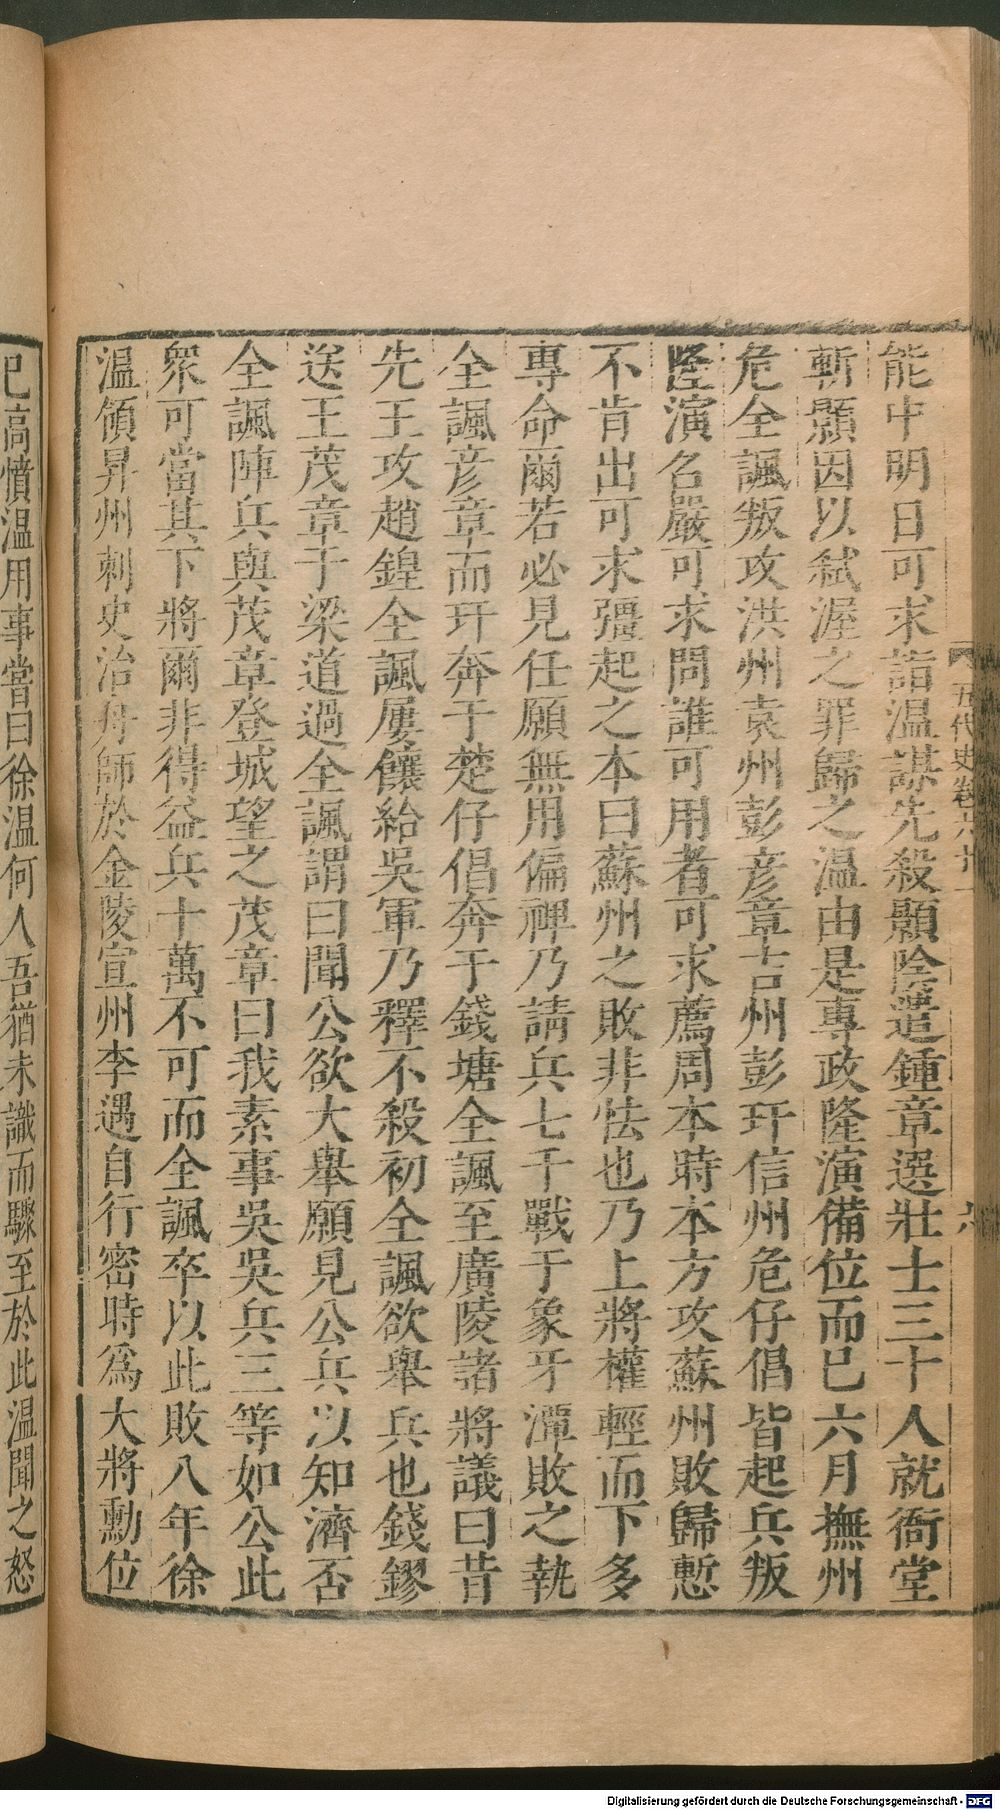 五代史卷六十一
六
能中明日可求詣溫謀先殺顥陰遣鍾章選壯士三十人就衙堂
斬顥因以弒渥之罪歸之溫由是專政隆演備位而已六月撫州
危全諷叛攻洪州袁州彭彥章吉州彭玕信州危仔倡皆起兵叛
隆演名嚴可求問誰可用者可求薦周本時本方攻蘇州敗歸慙
不肯出可求彊起之本曰蘇州之敗非怯也乃上將權輕而下多
專命爾若必見任願無用偏裨乃請兵七千戰于象牙潭敗之執
全諷彥章而玕奔于楚仔倡奔于錢塘全諷至廣陵諸將議曰昔
先王攻趙鍠全諷屢饟給吳軍乃釋不殺初全諷欲舉兵也錢鏐
送王茂章于梁道過全諷謂曰聞公欲大舉願見公兵以知濟否
全諷陣兵與茂章登城望之茂章曰我素事吳吳兵三等如公此
衆可當其下將爾非得益兵十萬不可而全諷卒以此敗八年徐
溫領昇州刺史治舟師於金陵宣州李遇自行密時爲大將勳位
已高憤溫用事嘗曰徐溫何人吾猶未識而驟至於此溫聞之怒
Digitalisierung gefördert durch die Deutsche Forschungsgemeinschaft - DFG